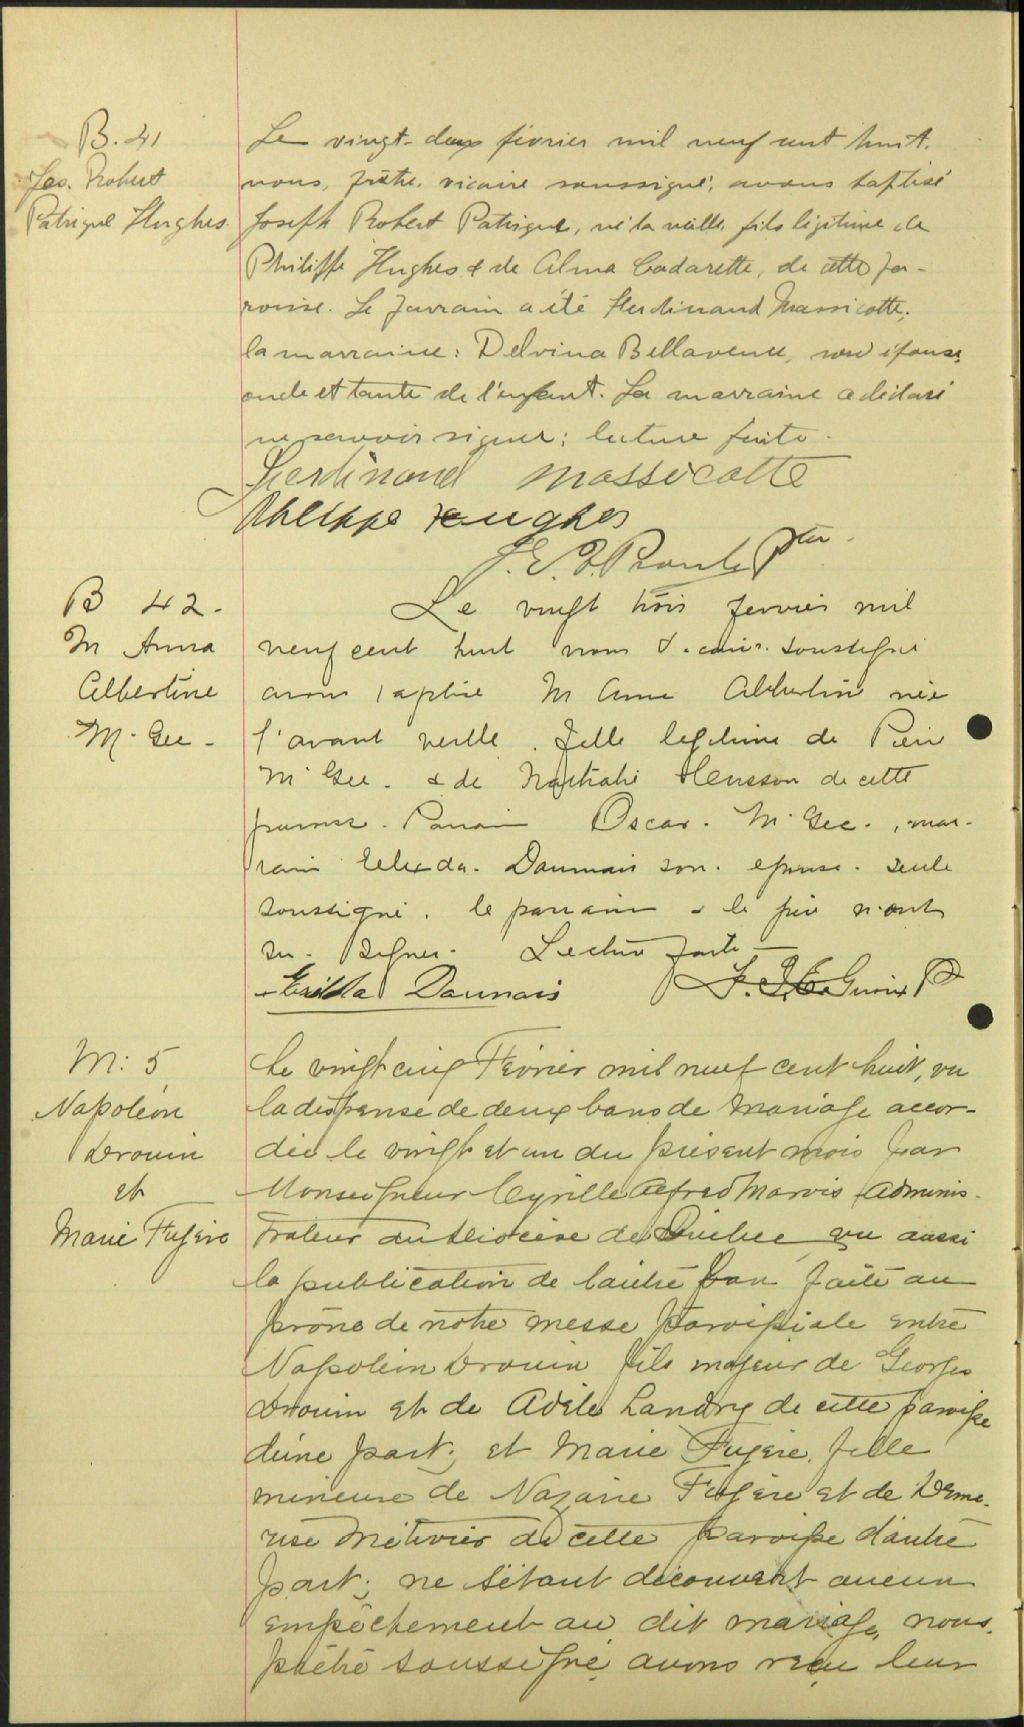 B. 41
Jos. Robert
Patrique Hughes.
Le vingt-deux février mil neuf cent huit,
nous, prêtre, vicaire soussigné, avons baptisé
Joseph Robert Patrique, né la veille, fils légitime de
Philippe Hughes & de Alma Cadarette, de cette pa-
roisse. Le parrain a été Ferdinand Massicotte,
la marraine: Delvina Bellavence, son épouse,
oncle et tante de l'enfant. La marraine a déclaré
ne savoir signer; lecture faite.
Ferdinand Massicotte
Philippe Hughes
Ptre.
B 42.
M Anna
Albertine
Mc Gee.
Le vingt trois fevrier mil
neuf cent huit nous vicaire soussigné
avons baptisé M Anna Albertine née
l'avant veille. fille legitime de Pierre
Mc Gee. & de Nathalie de cette
paroisse. Parrain Oscar. Mc Gee., mar-
raine Daunais son. epouse. seule
soussigné. le parrain & le père n'ont
su. signer. Lecture faite
Daunais
M: 5
Napoléon
Drouin
et
Marie Fugère
Le vingt cinq Février mil neuf cent huit, vu
la dispense de deux bans de mariage accor-
dée le vingt et un du présent mois par
Monseigneur Cyrille Alfred Marois Adminis-
trateur du diocèse de Québec, vu aussi
la publication de l'autre ban faite au
prône de notre messe paroissiale entre
Napoléon Drouin fils majeur de Georges
Drouin et de Adèle Landry de cette paroisse
d'une part; et Marie Fugère, fille
mineure de Nazaire Fugère et de Deme-
rise Métivier de cette paroisse d'autre
part; ne s'étant découvert aucun
empêchement au dit mariage, nous,
prêtre soussigné avons reçu leur